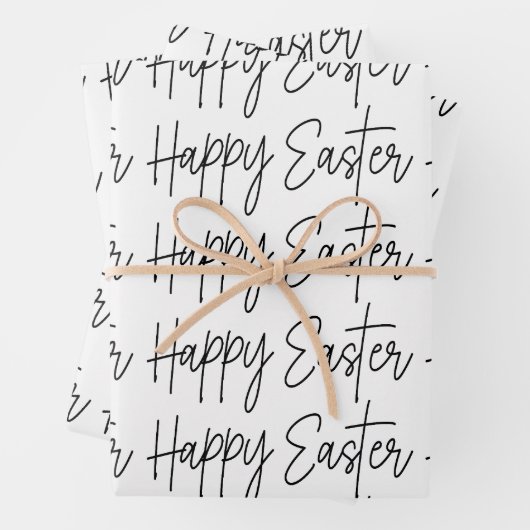 Easter
Happy Easter
Happy Easter
Happy Easter
Happy Easter
Happy Easter